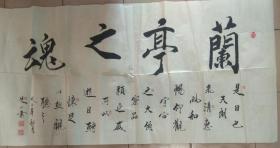 蘭亭之魂
是日也
天朗
氣清惠
風和
暢仰觀
宇宙
之大俯
察品
類之盛
所以
遊目騁
懷足
以極視
聽